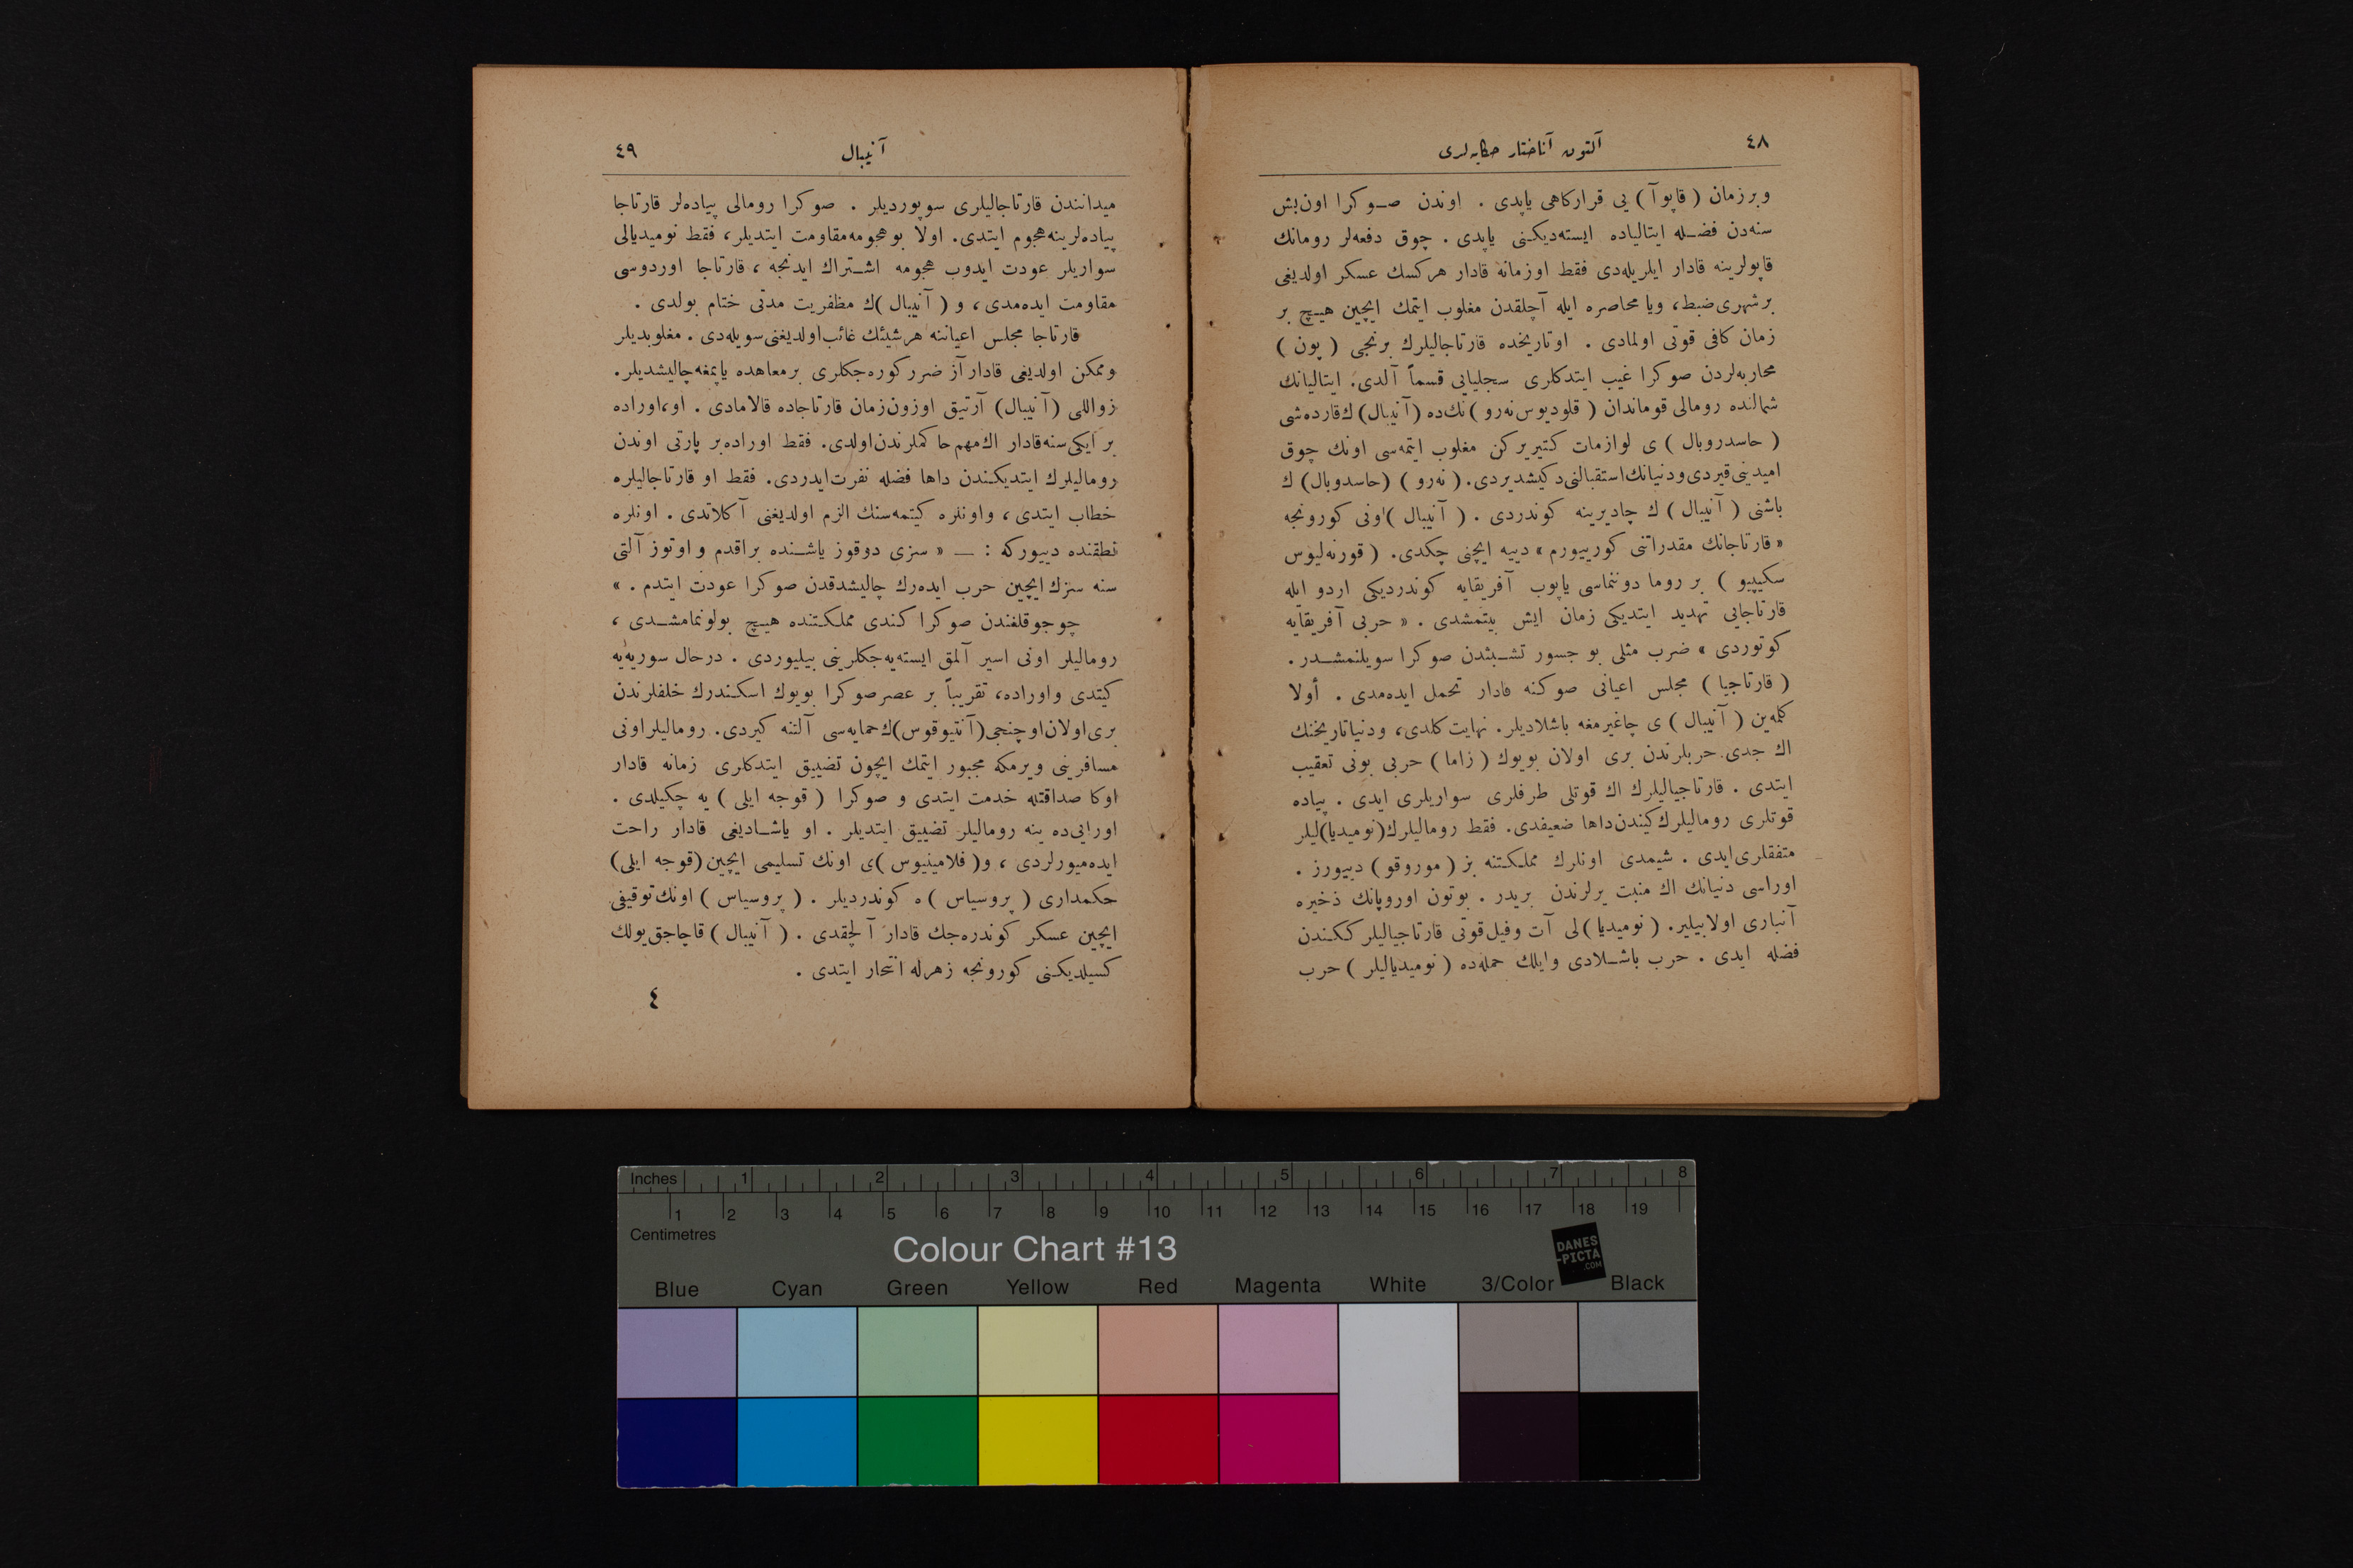 ٤٨
آلتون آناختار حكايه‌لرى
وبرزمان ( قاپوآ ) يى قراركاهى ياپدى . اوندن صـوكرا اون‌بش
سنه‌دن فضـله ايتالياده ايسته‌ديكنى ياپدى . چوق دفعه‌لر رومانك
قاپولرينه قادار ايلريله‌دى فقط اوزمانه قادار هركسك عسكر اولديغى
برشهرى ضبط، ويا محاصره ايله آچلقدن مغلوب ايتمك ايچين هيـچ بر
زمان كافى قوتى اولمادى . اوتاريخده قارتاجاليلرك برنجى ( پون )
محاربه‌لردن صوكرا غيب ايتدكلرى سجليايى قسماً آلدى. ايتاليانك
شمالنده رومالى قوماندان ( قلوديوس نه‌رو ) نك‌ده (آنيبال) ك‌قارده‌شى
( حاسدروبال ) ى لوازمات كتيريركن مغلوب ايتمه‌سى اونك چوق
اميدينى قيردى ودنيانك استقبالنى دكيشديردى. ( نه‌رو ) (حاسدوبال) ك
باشنى ( آنيبال ) ك چاديرينه كوندردى . ( آنيبال ) اونى كورونجه
« قارتاجانك مقدراتنى كورييورم » دييه ايچنى چكدى. ( قورنه‌ليوس
سكيپيو ) بر روما دوننماسى ياپوب آفريقايه كوندرديكى اردو ايله
قارتاجايى تهديد ايتديكى زمان ايش بيتمشدى . « حربى آفريقايه
كوتوردى » ضرب مثلى بو جسور تشـبثدن صوكرا سويلنمشـدر .
( قارتاجيا ) مجلس اعيانى صوكنه قادار تحمل ايده‌مدى . أولا
كلمه‌ين ( آنيبال ) ى چاغيرمغه باشلاديلر. نهايت كلدى، ودنيا تاريخنك
اك جدى حربلرندن برى اولان بويوك ( زاما ) حربى بونى تعقيب
ايتدى . قارتاجياليلرك اك قوتلى طرفلرى سواريلرى ايدى . پياده
قوتلرى روماليلرك كيندن داها ضعيفدى. فقط روماليلرك (نوميديا) ليلر
متفقلرى ايدى . شيمدى اونلرك مملكـتنه بز ( موروقو ) دييورز .
اوراسى دنيانك اك منبت يرلرندن بريدر . بوتون اوروپانك ذخيره
آنبارى اولابيلير. ( نوميديا ) لى آت وفيل قوتى قارتاجياليلر ككندن
فضله ايدى . حرب باشـلادى وايلك حمله‌ده ( نوميدياليلر ) حرب
آنيبال
٤٩
ميدانندن قارتاجاليلرى سوپورديلر . صوكرا رومالى پياده‌لر قارتاجا
پياده‌لرينه هجوم ايتدى. اولا بو هجومه مقاومت ايتديلر، فقط نوميديالى
سواريلر عودت ايدوب هجومه اشـتراك ايدنجه ، قارتاجا اوردوسى
مقاومت ايده‌مدى ، و ( آنيبال ) ك مظفريت مدتى ختام بولدى .
قارتاجا مجلس اعياننه هرشيئك غائب اولديغنى سويله‌دى . مغلوبديلر
وممكن اولديغى قادار آز ضرر كوره‌جكلرى برمعاهده ياپمغه چاليشديلر.
زواللى (آنيبال) آرتيق اوزون زمان قارتاجاده قالامادى . او، اوراده
بر ايكى سنه قادار اك مهم حاكملرندن اولدى. فقط اوراده بر پارتى اوندن
روماليلرك ايتديكـندن داها فضله نفرت ايدردى. فقط او قارتاجاليلره
خطاب ايتدى ، واونلره كيتمه‌سنك الزم اولديغنى آكلاتدى . اونلره
نطقنده دييوركه : — « سزى دوقوز ياشـنده براقدم و اوتوز آلتى
سنه سزك ايچين حرب ايده‌رك چاليشدقدن صوكرا عودت ايتدم . »
چوجوقلغندن صوكرا كندى مملكـتنده هيـچ بولونمامشـدى ،
روماليلر اونى اسير آلمق ايسته‌يه‌جكلرينى بيليوردى . درحال سوريه‌يه
كيتدى واوراده، تقريباً بر عصر صوكرا بويوك اسكـندرك خلفلرندن
برى اولان اوچنجى (آنتيوقوس) ك حمايه‌سى آلتنه كيردى. روماليلر اونى
مسافرينى ويرمكه مجبور ايتمك ايچون تضييق ايتدكلرى زمانه قادار
اوكا صداقتله خدمت ايتدى و صوكرا ( قوجه ايلى ) يه چكيلدى .
اورايى‌ده ينه روماليلر تضييق ايتديلر . او ياشـاديغى قادار راحت
ايده‌ميورلردى ، و( فلامينيوس ) ى اونك تسليمى ايچين (قوجه ايلى)
حكمدارى ( پروسياس ) ه كوندرديلر . ( پروسياس ) اونك توقيفى
ايچين عسكر كوندره‌جك قادار آلچقدى . ( آنيبال ) قاچاجق يولك
كسيلديكنى كورونجه زهرله انتحار ايتدى .
٤
Inches 1 2 3 4 5 6 7 8
1 2 3 4 5 6 7 8 9 10 11 12 13 14 15 16 17 18 19
Centimetres
Colour Chart #13
DANES
-PICTA
.COM
Blue Cyan Green Yellow Red Magenta White 3/Color Black